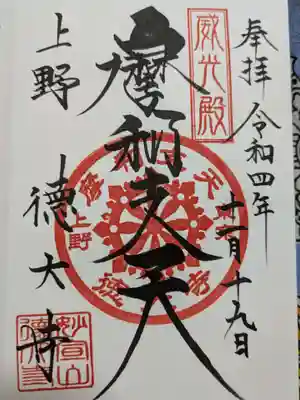 奉拝 令和四年
十一月十九日
威光殿
摩利支天
上野
徳大寺
上野
妙宣山
徳大寺